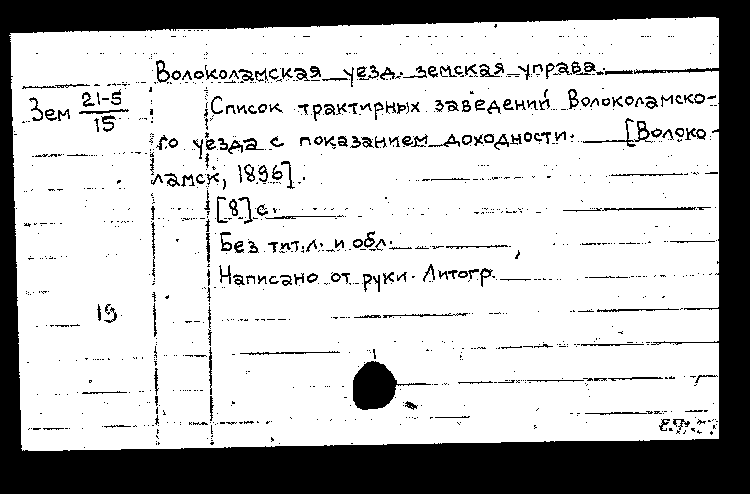 Волоколамская уезд. земская управа.
Зем 21-5/15
Список трактирных заведений Волоколамско-
го уезда с показанием доходности. [Волоко-
ламск, 1896].
[8] с.
Без тит.л. и обл.
Написано от руки. Литогр.
19